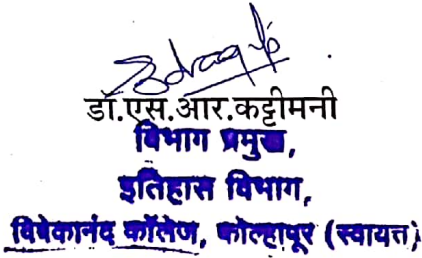 डॉ.एस.आर.कट्टीमनी
विभाग प्रमुख,
इतिहास विभाग,
विवेकानंद कॉलेज, कोल्हापूर (स्वायत्त)